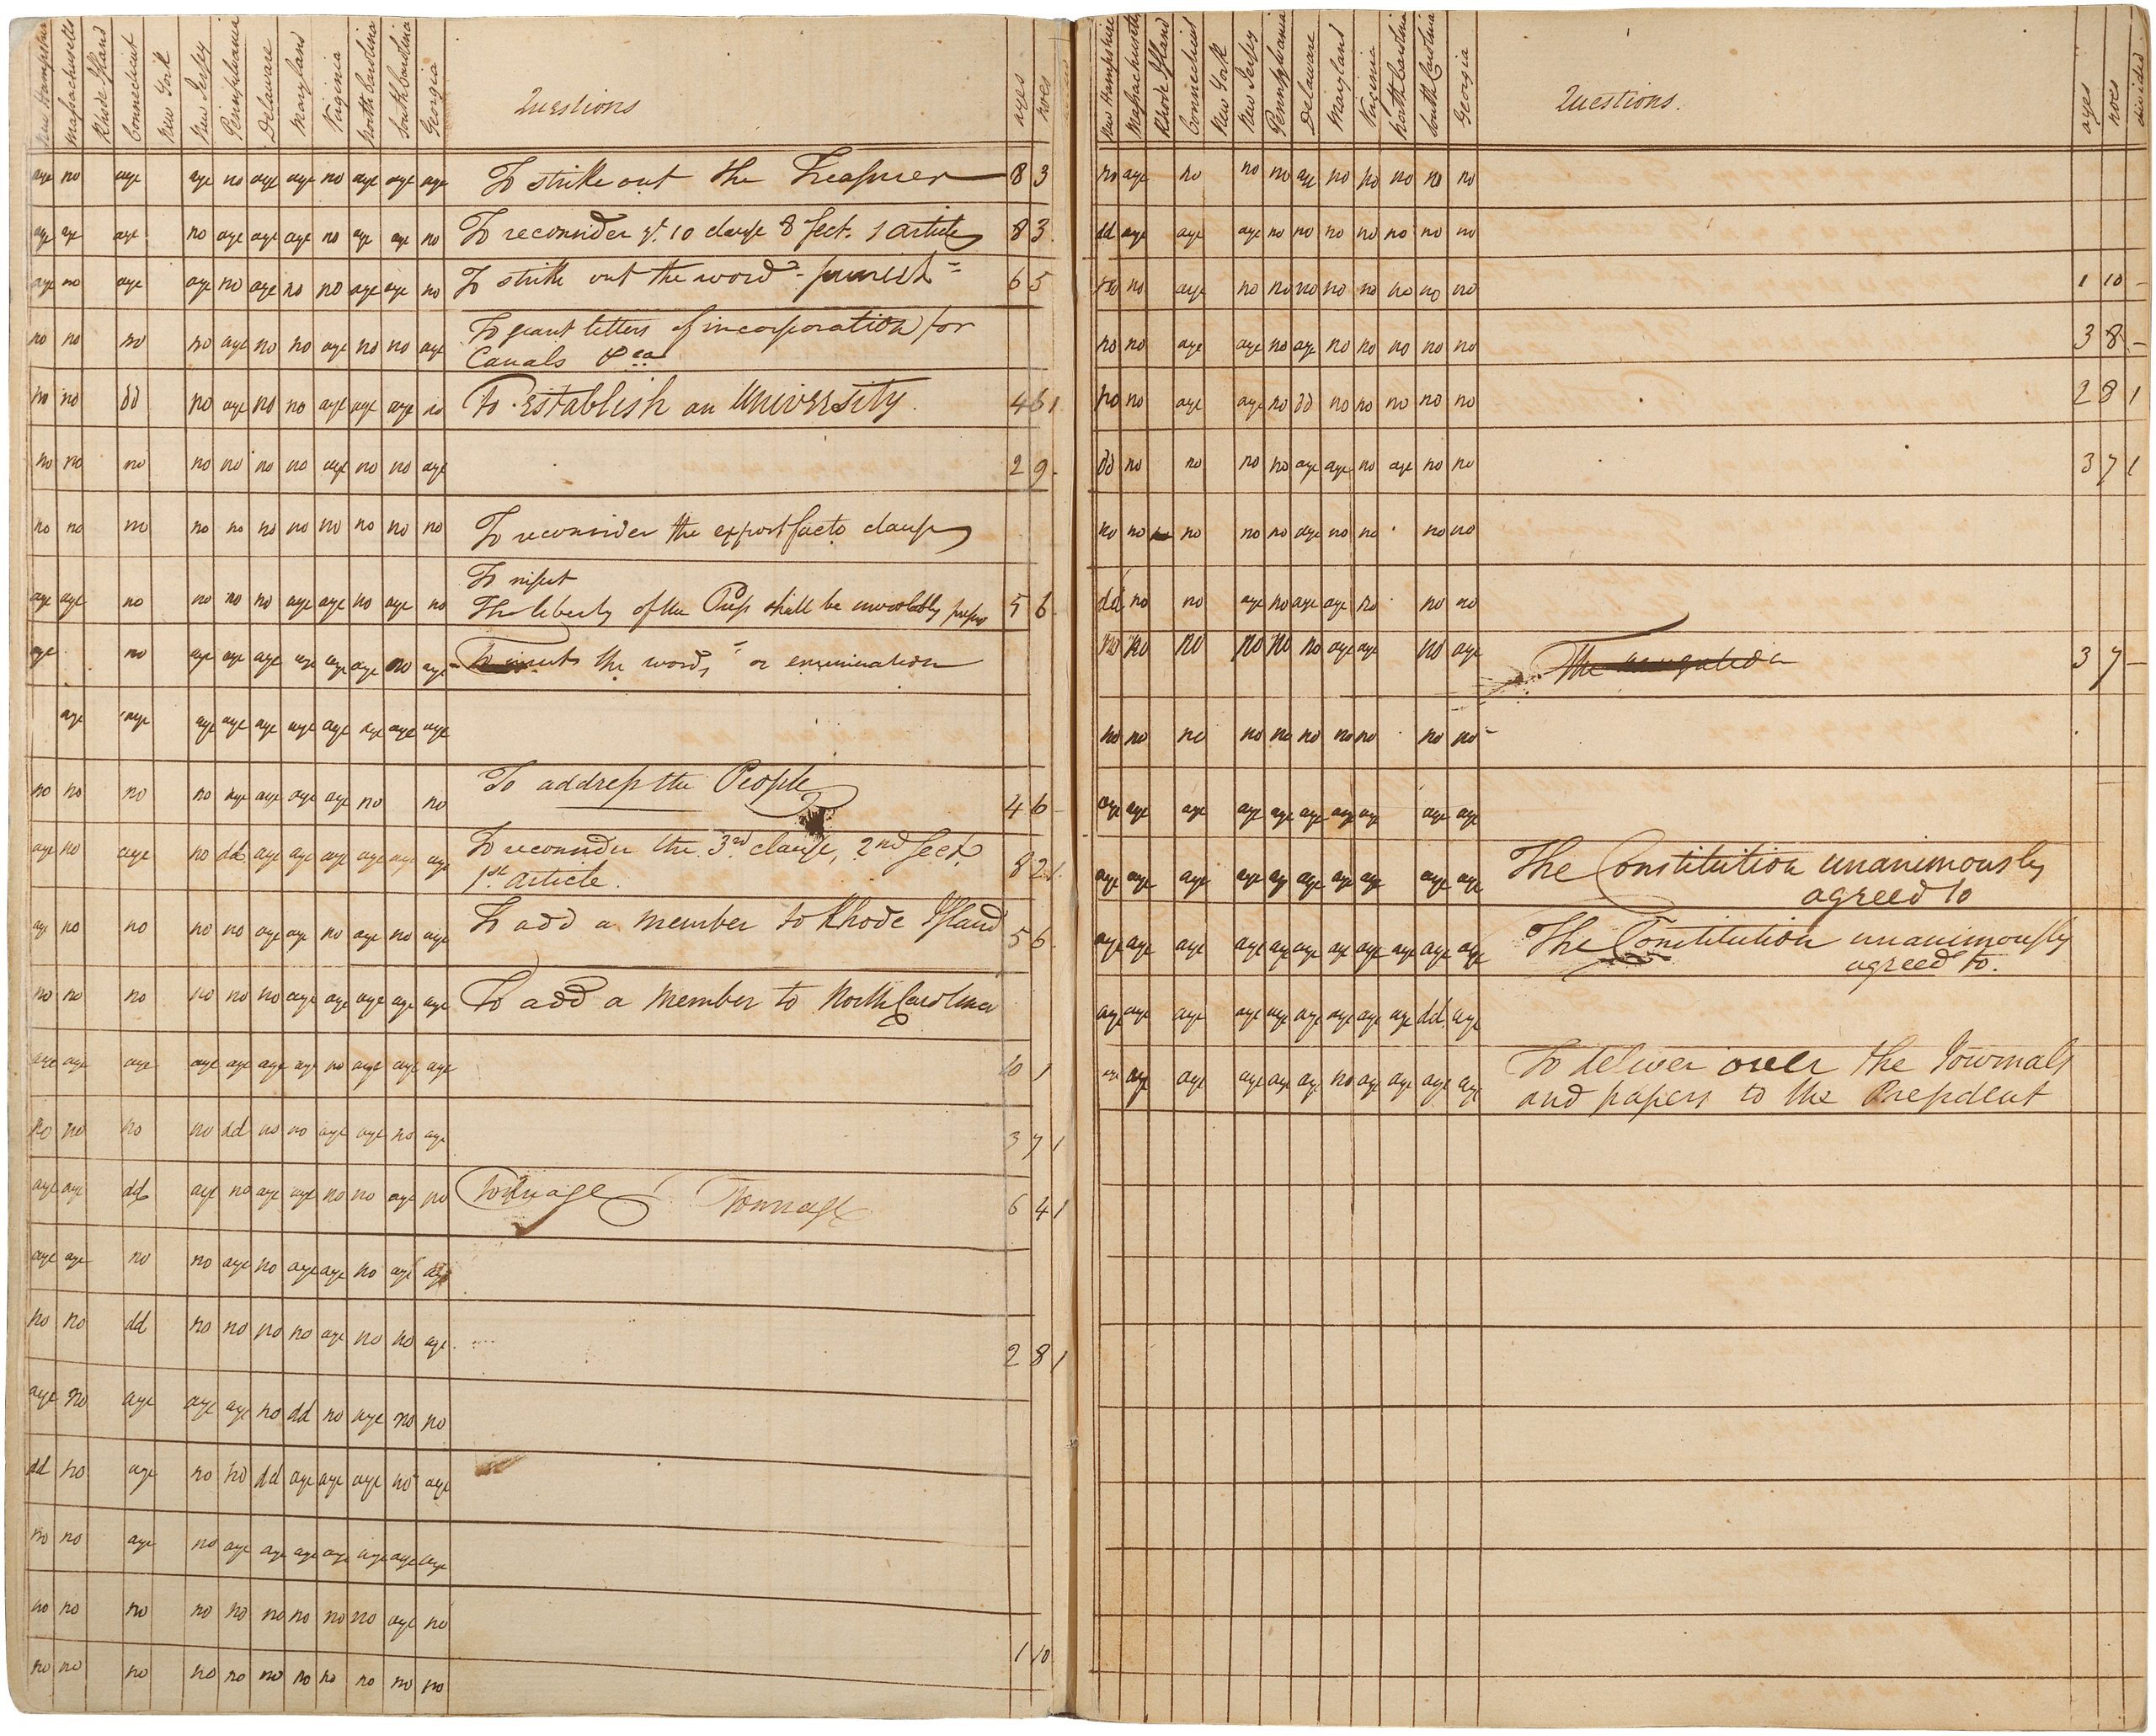 New Hampshire Massachusetts Rhode Island Connecticut New York New Jersey Pennsylvania Delaware Maryland Virginia North Carolina South Carolina Georgia Questions ayes noes
aye no aye aye no aye aye no aye aye aye To strike out the Treasurer 8 3
aye aye aye no aye aye aye no aye aye no To reconsider yt. 10 clause 8 sect. 1 article 8 3
aye no aye aye no aye no no aye aye no To strike out the word "punish" 6 5
no no no no aye no no aye no no aye To grant letters of incorporation for
Canals &ca
no no dd no aye no no aye aye aye no To establish an University. 4 6 1
no no no no no no no aye no no aye 2 9
no no no no no no no no no no no To reconsider the expost facto clause
To insert
aye aye no no no no aye aye no aye no The liberty of the Press shall be inviolably 5 6
aye no aye aye aye aye aye aye no aye the words " or enumeration
aye aye aye aye aye aye aye aye aye aye
no no no no aye aye aye aye no no To address the People 4 6
aye no aye no dd aye aye aye aye aye aye To reconsider the 3rd clause, 2nd sect.
1st article. 8 2 1
aye no no no no aye aye no aye no aye To add a member to Rhode Island 5 6
no no no no no no aye aye aye aye aye To add a member to North Carolina
aye aye aye aye aye aye aye no aye aye aye 10 1
no no no no dd no no aye aye no aye 3 7 1
aye aye dd aye no aye aye no no aye no Tonnage Tonnage 6 4 1
aye aye no no aye no aye aye no aye aye
no no dd no no no no aye no no aye 2 8 1
aye no aye aye aye no dd no aye no no
dd no aye no no dd aye aye aye no aye
no no aye no aye aye aye aye aye aye aye
no no no no no no no no no aye no 1 10
no no no no no no no no no no no
New Hampshire Massachusetts Rhode Island Connecticut New York New Jersey Pennsylvania Delaware Maryland Virginia North Carolina South Carolina Georgia Questions. ayes noes divided
no aye no no no aye no no no no no
dd aye aye aye no no no no no no no
no no aye no no no no no no no no 1 10 –
no no aye aye no aye no no no no no 3 8 –
no no aye aye no dd no no no no no 2 8 1
dd no no no no aye aye no aye no no 3 7 1
no no no no no aye no no no no
dd no no aye no aye aye no no no
no no no no no no aye aye no aye The 3 7 –
no no no no no no no no no no
aye aye aye aye aye aye aye aye aye aye
aye aye aye aye aye aye aye aye aye aye The Constitution unanimously
agreed to
aye aye aye aye aye aye aye aye aye aye aye The Constitution unanimously
agreed to.
aye aye aye aye aye aye aye aye aye dd aye
aye aye aye aye aye aye no aye aye aye aye To deliver over the Journals
and papers to the President